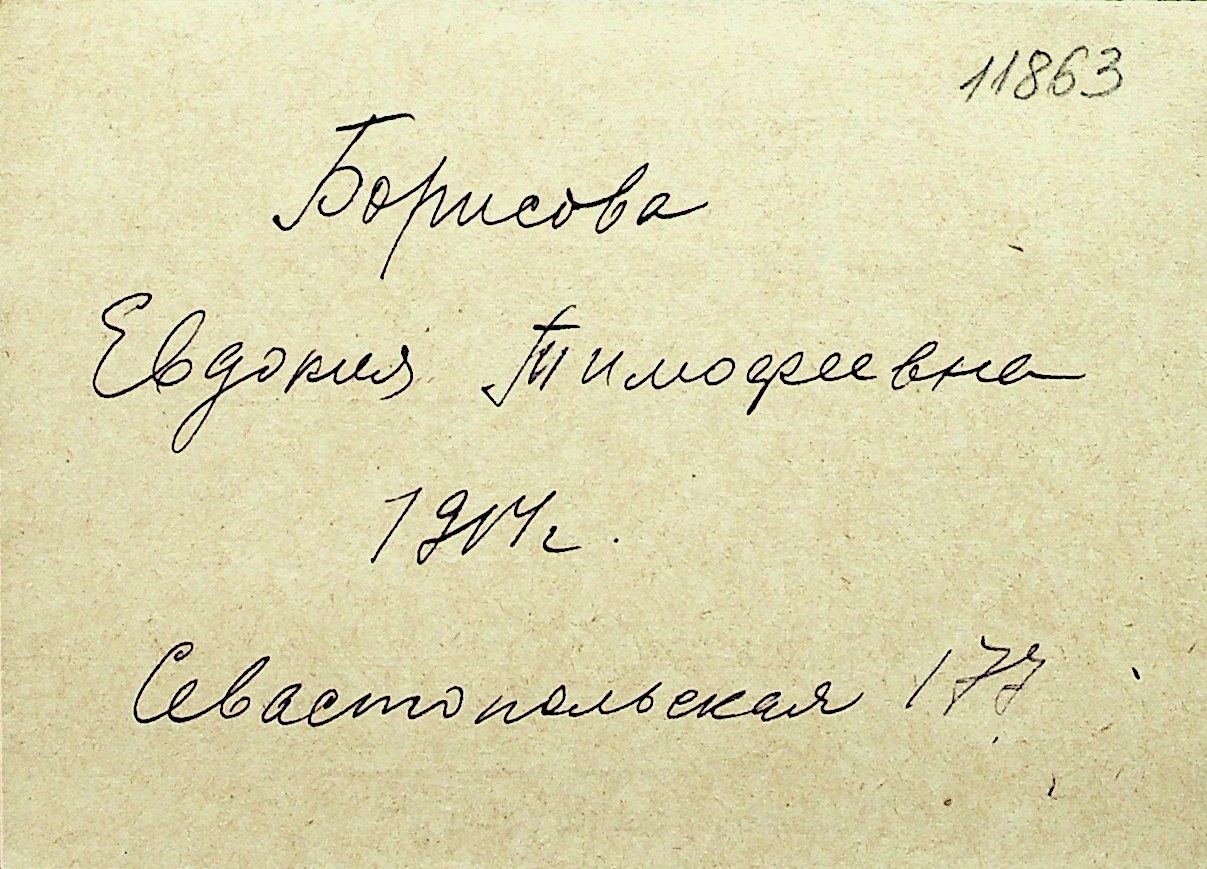 11863
Борисова
Евдокия Тимофеевна
1914г.
Севастопольская 177